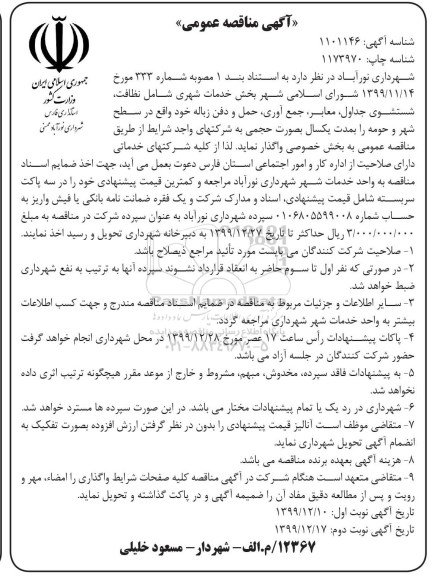 «آگهی مناقصه عمومی»
جمهوری اسلامی ایران
وزارت کشور
استانداری فارس
شهرداری نورآباد ممسنی
شناسه آگهی: ۱۱۰۱۱۴۶
شناسه چاپ: ۱۱۷۳۹۷۰
شهرداری نورآباد در نظر دارد به استناد بند ۱ مصوبه شماره ۳۳۳ مورخ
۱۳۹۹/۱۱/۱۴ شورای اسلامی شهر بخش خدمات شهری شامل نظافت،
شستشوی جداول، معابر، جمع آوری، حمل و دفن زباله خود واقع در سطح
شهر و حومه را بمدت یکسال بصورت حجمی به شرکتهای واجد شرایط از طریق
مناقصه عمومی به بخش خصوصی واگذار نماید. لذا از کلیه شرکتهای خدماتی
دارای صلاحیت از اداره کار و امور اجتماعی استان فارس دعوت بعمل می آید، جهت اخذ ضمایم اسناد
مناقصه به واحد خدمات شهر شهرداری نورآباد مراجعه و کمترین قیمت پیشنهادی خود را در سه پاکت
سربسته شامل قیمت پیشنهادی، اسناد و مدارک شرکت و یک فقره ضمانت نامه بانکی یا فیش واریز به
حساب شماره ۰۱۰۶۸۰۵۵۹۹۰۰۸ سپرده شهرداری نورآباد به عنوان سپرده شرکت در مناقصه به مبلغ
۳/۰۰۰/۰۰۰/۰۰۰ ریال حداکثر تا تاریخ ۱۳۹۹/۱۲/۲۷ به دبیرخانه شهرداری تحویل و رسید اخذ نمایند.
۱- صلاحیت شرکت کنندگان می بایست مورد تأئید مراجع ذیصلاح باشد.
۲- در صورتی که نفر اول تا سوم حاضر به انعقاد قرارداد نشوند سپرده آنها به ترتیب به نفع شهرداری
ضبط خواهد شد.
۳- سایر اطلاعات و جزئیات مربوط به مناقصه در ضمایم اسناد مناقصه مندرج و جهت کسب اطلاعات
بیشتر به واحد خدمات شهر شهرداری مراجعه گردد.
۴- پاکات پیشنهادات رأس ساعت ۱۷ عصر مورخ ۱۳۹۹/۱۲/۲۸ در محل شهرداری انجام خواهد گرفت
حضور شرکت کنندگان در جلسه آزاد می باشد.
۵- به پیشنهادات فاقد سپرده، مخدوش، مبهم، مشروط و خارج از موعد مقرر هیچگونه ترتیب اثری داده
نخواهد شد.
۶- شهرداری در رد یک یا تمام پیشنهادات مختار می باشد. در این صورت سپرده ها مسترد خواهد شد.
۷- متقاضی موظف است آنالیز قیمت پیشنهادی را بدون در نظر گرفتن ارزش افزوده بصورت تفکیک به
انضمام آگهی تحویل شهرداری نماید.
۸- هزینه آگهی بعهده برنده مناقصه می باشد.
۹- متقاضی متعهد است هنگام شرکت در آگهی مناقصه کلیه صفحات شرایط واگذاری را امضاء، مهر و
رویت و پس از مطالعه دقیق مفاد آن را ضمیمه آگهی و در پاکت گذاشته و تحویل نماید.
تاریخ آگهی نوبت اول: ۱۳۹۹/۱۲/۱۰
تاریخ آگهی نوبت دوم: ۱۳۹۹/۱۲/۱۷
۱۲۳۶۷/م.الف- شهردار- مسعود خلیلی